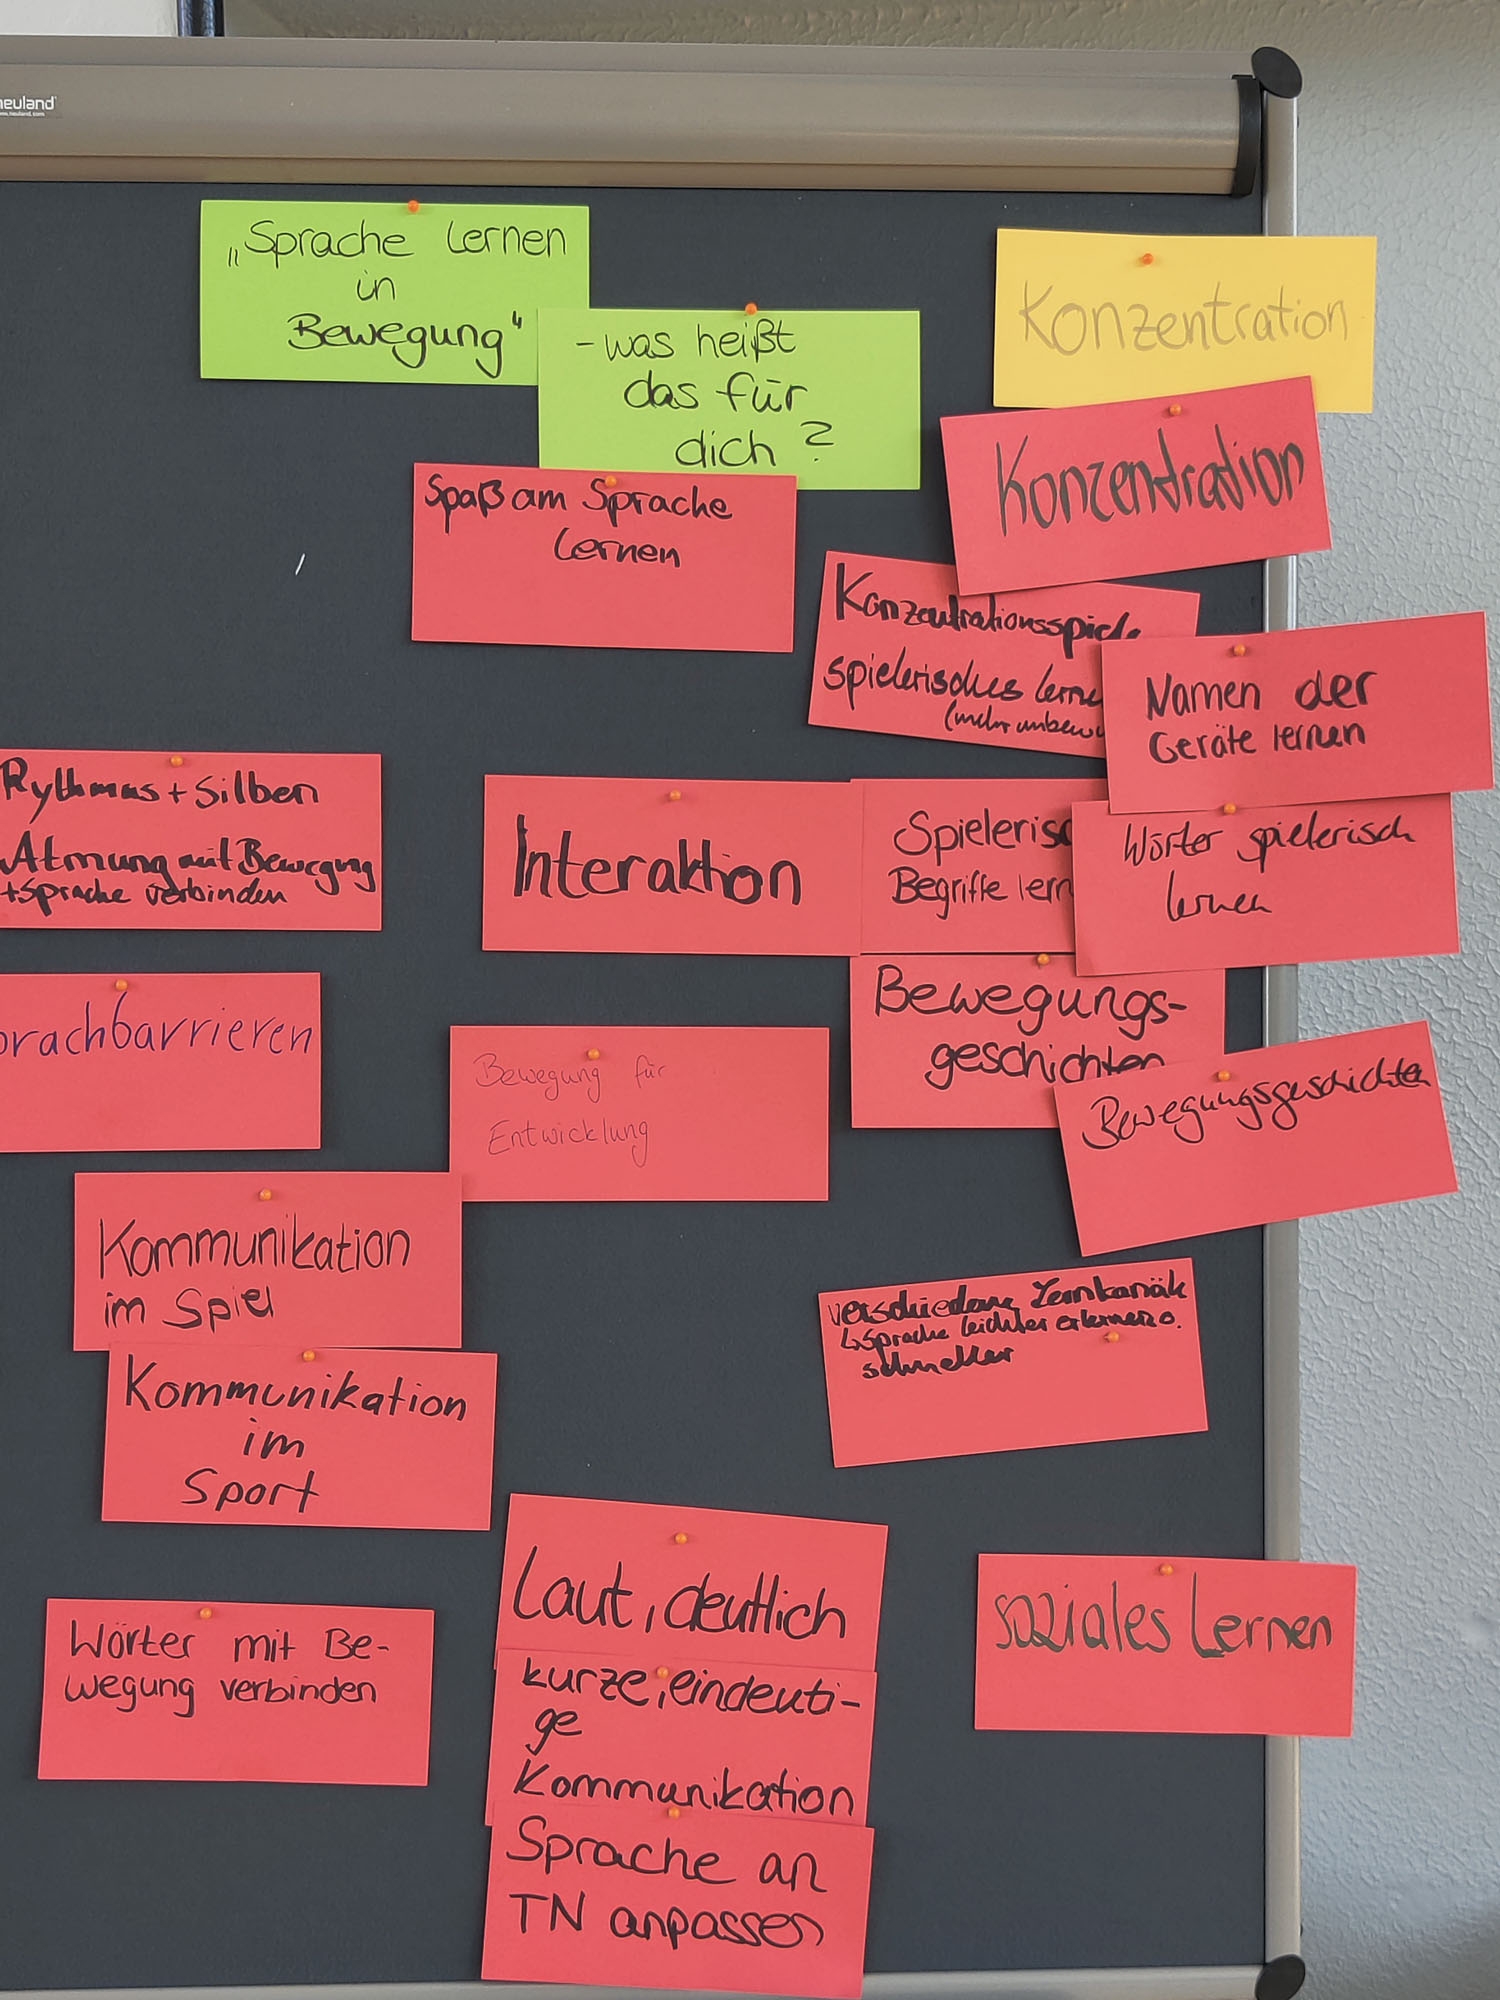 neuland
„Sprache lernen
in
Bewegung“
- was heißt
das für
dich ?
Konzentration
Konzentration
Spaß am Sprache
lernen
Konzentrationsspiele
spielerisches lerne
(mehr unbewu
Namen der
Geräte lernen
Rythmus + Silben
Atmung mit Bewegung
+ Sprache verbinden
Interaktion
Spielerisc
Begriffe lern
Wörter spielerisch
lernen
prachbarrieren
Bewegung für
Entwicklung
Bewegungs-
geschichten
Bewegungsgeschichten
Kommunikation
im Spiel
Kommunikation
im
Sport
verschiedene Lernkanäle
↳ Sprache leichter erlernen o.
schneller
Laut, deutlich
kurze, eindeuti-
ge
Kommunikation
Sprache an
TN anpassen
soziales Lernen
Wörter mit Be-
wegung verbinden